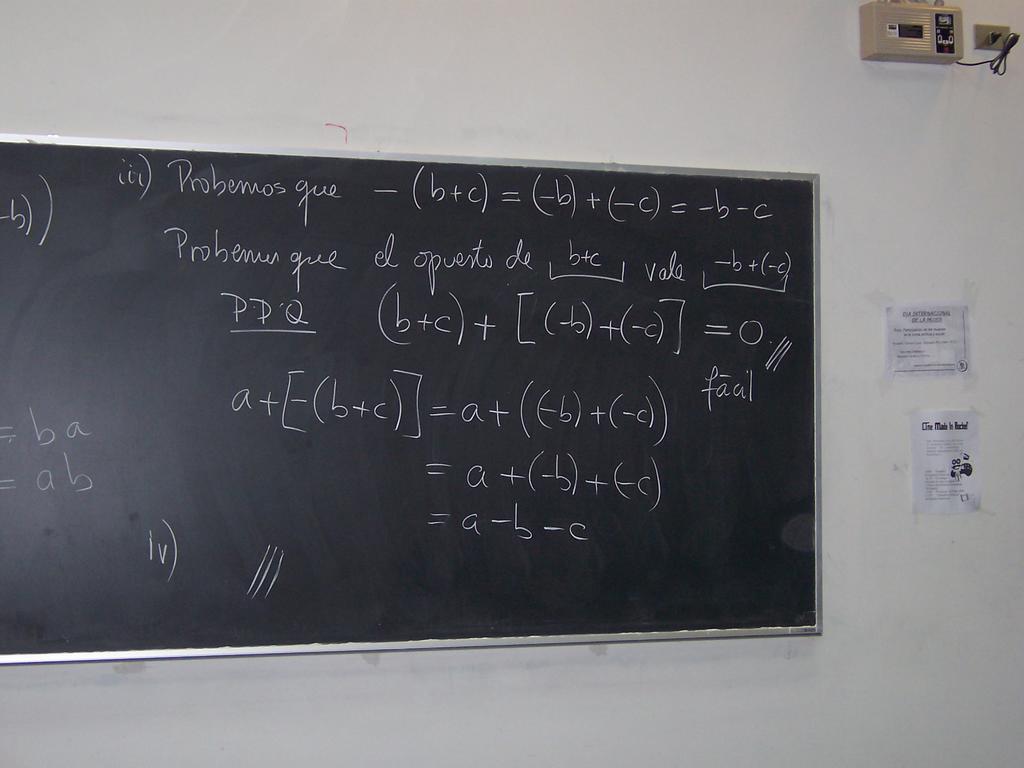 -b))
= ba
= ab
iii) Probemos que - (b+c) = (-b) + (-c) = -b - c
Probemos que el opuesto de b+c vale -b+(-c)
P.P.Q (b+c) + [(-b)+(-c)] = 0. ///
fácil
a+[-(b+c)] = a + ((-b)+(-c))
= a + (-b) + (-c)
= a - b - c
iv) ///
DIA INTERNACIONAL
DE LA MUJER
Cine Made In Rocho!